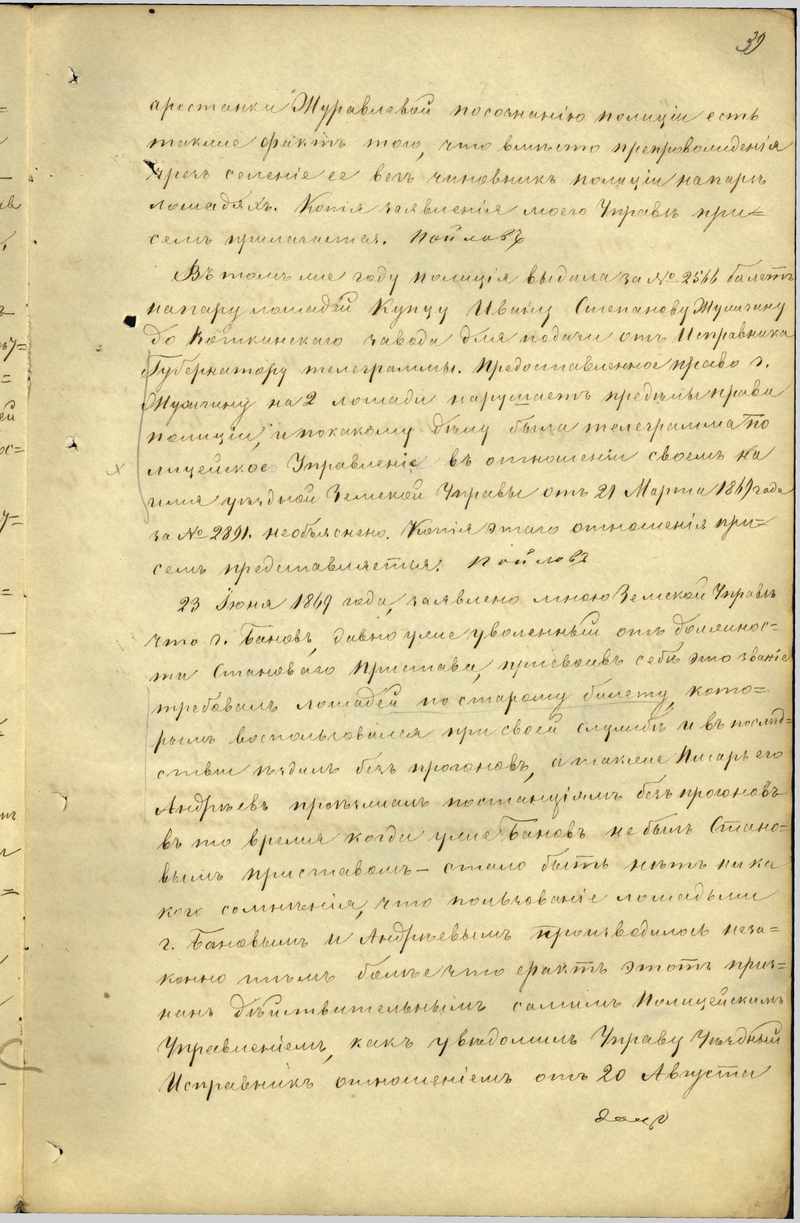 39
арестанки Журавлевой посознанію полиціи есть
также фактъ того, что вмѣсто препровожденія
чрезъ селеніе ее везъ чиновникъ полиціи напарѣ
лошадяхъ. Копія заявленія моего Управѣ при=
семъ прилагается.
Въ томъ же году полиція выдала за № 2566 билетъ
напару лошадей Купцу Ивану Степанову Жулягину
до Воткинскаго завода для подачи отъ Исправника
Губернатору телеграммы. Предоставленное право г.
на 2 лошади нарушаетъ предѣлы права
полиціи, и покакому дѣлу была телеграмма по
лицейское Управленіе въ отношеніи своемъ на
имя уѣздной Земской Управы отъ 21 Марта 1869 года
за № 2891. необъяснено. Копія этаго отношенія при=
семъ представляется.
23 Іюня 1869 года, заявлено мною Земской Управѣ
что г. Бановъ, давно уже уволенный отъ должнос=
ти Становаго Пристава, присвоивъ себѣ это званіе
требовалъ лошадей по старому билету, кото=
рымъ воспользовался при своей службѣ и въ послѣд=
ствіи ѣздилъ безъ прогоновъ, а также Писарь его
Андрѣевъ проѣзжалъ постанціямъ безъ прогоновъ
въ то время когда уже Бановъ не былъ Стано=
вымъ приставомъ — стало быть нѣтъ ника
кого сомнѣнія, что пользованіе лошадьми
г. Бановымъ и Андрѣевымъ производилось неза=
конно тѣмъ болѣе что фактъ этотъ приз=
нанъ дѣйствительнымъ самимъ Полицейскимъ
Управленіемъ, какъ увѣдомилъ Управу Уѣздный
Исправникъ отношеніемъ отъ 20 Августа